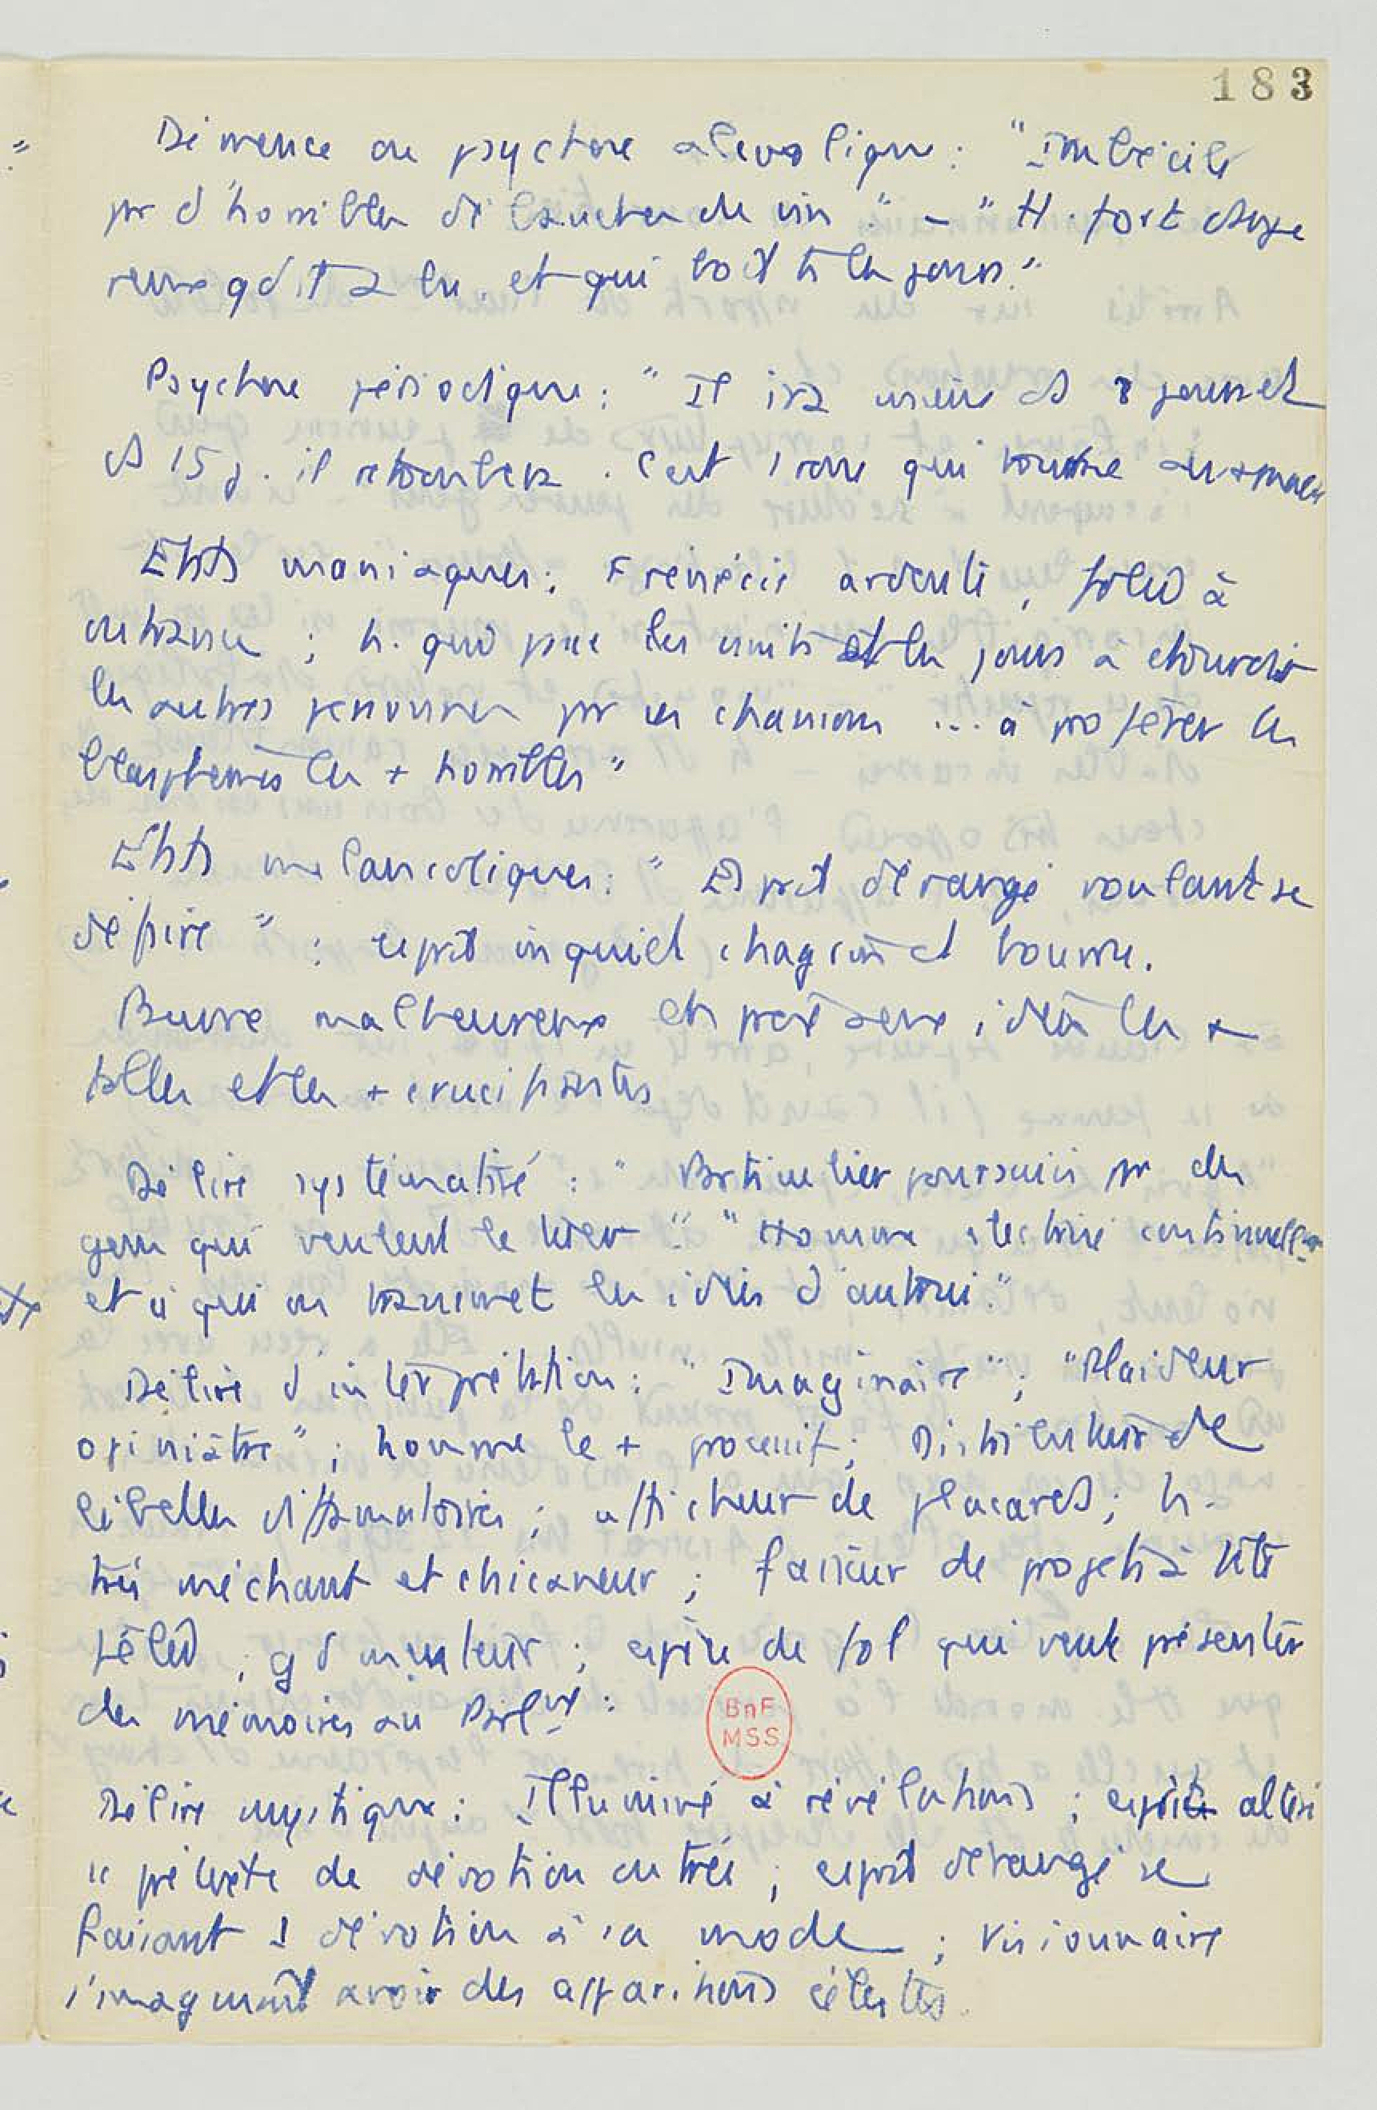 183
Démence ou psychose alcoolique : "Imbécile
pr d'horribles débauches de vin." — "H. fort
et qui boit ts les jours."
Psychose périodique : " Il ira mieux ds 8 jours et
ds 15 j. il retombera. C'est 1 roue qui tourne
Etats maniaques : Frénésie ardente, folie à
outrance ; h. qui passe les nuits et les jours à étourdir
les autres personnes pr ses chansons ... à proférer les
blasphèmes les + horribles"
Etats mélancoliques : " Esprit dérangé voulant se
défaire " : esprit inquiet chagrin et bourru.
Pauvre malheureux les idées les +
folles et les + crucifiantes
Délire systématisé : " Particulier poursuivi pr des
gens qui veulent le tuer " " Homme électrisé continuellem
et à qui on transmet les idées d'autrui."
Délire d'interprétation : " Imaginaire " ; "Plaideur
opiniâtre" ; homme le + processif ; Distributeur de
libelles diffamatoires ; afficheur de placards ; h.
très méchant et chicaneur ; faiseur de projets à tête
fêlée ; gd menteur ; espèce de fol qui veut présenter
des mémoires au Parlnt :
BnF
MSS
Délire mystique : Illuminé à révélations ; esprit altéré
ss prétexte de dévotion outrée ; esprit dérangé se
faisant 1 dévotion à sa mode ; Visionnaire
s'imaginant avoir des apparitions célestes.